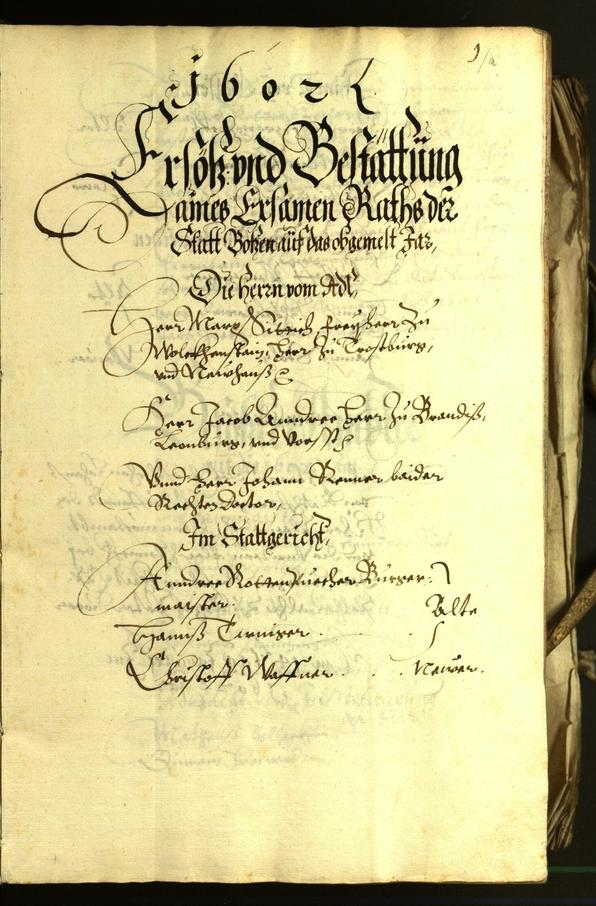 1/a
1602
Ersötz vnd Bestattüng
aines Ersamen Raths der
Statt Botzen auf das obgemelt Jar,
Die Herrn vom Adl,
Herr Marx Sittich Freyherr zu
Wolckhenstain, Herr zu Trostburg,
vnd Newhauß
Herr Jacob Anndree Herr zu Brandiß,
Leonburg, vnd Vorst
Vnnd Herr Johann Renner baider
Rechten Doctor,
Im Stattgericht,
Anndree Rottenpuecher Burger-
maister. Alte
Tirniger.
Christoff Waffner. Newer.